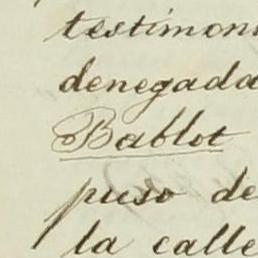 testimoni
denegada
Bablot
puso de
la calle